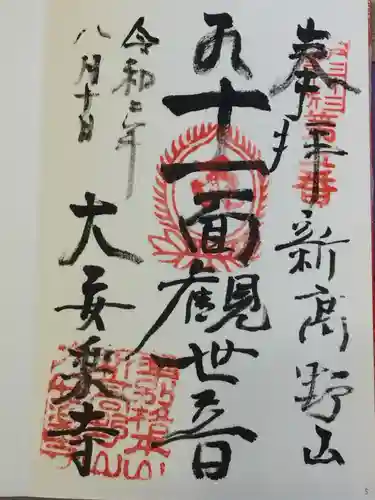 奉拝 新高野山
十一面観世音
令和二年
八月十日
大安楽寺